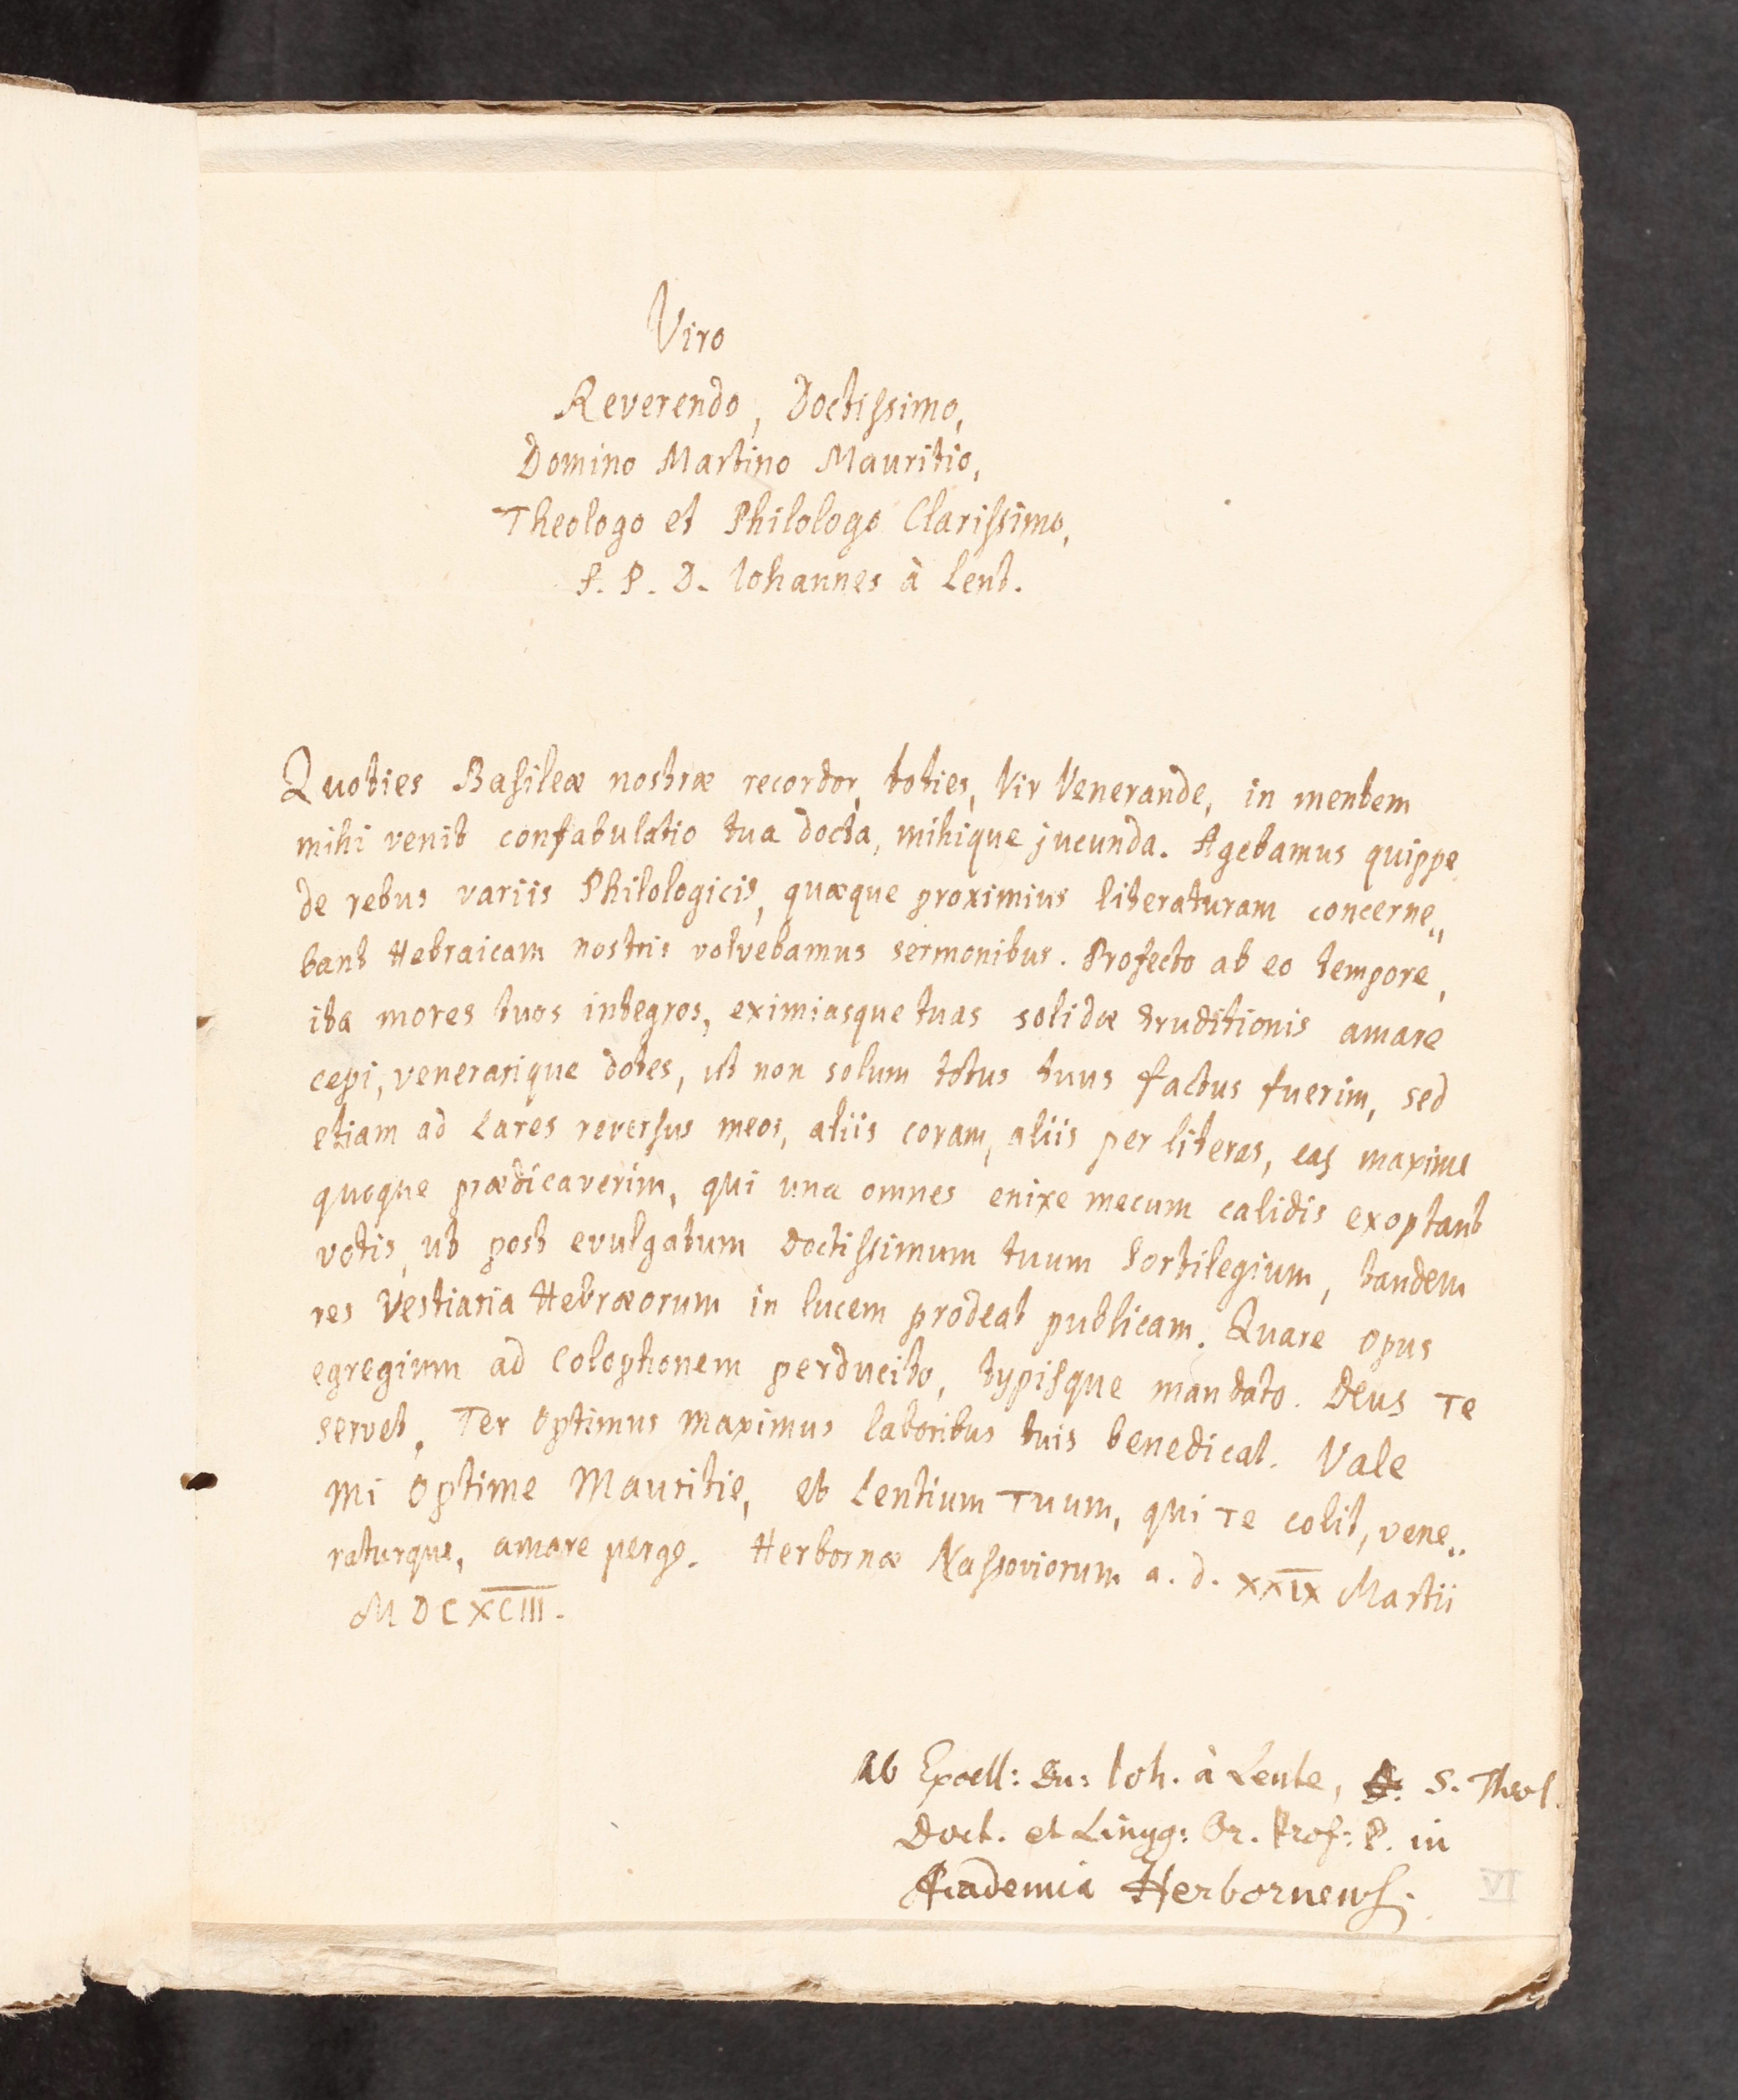 Viro
Reverendo, Doctissimo,
Domino Martino Mauritio,
Theologo et Philologo Clarissimo,
S. P. D. Iohannes à Lent.
Quoties Basileæ nostræ recordor, toties, Vir Venerande, in mentem
mihi venit confabulatio tua docta, mihique jucunda. Agebamus quippe
de rebus variis Philologicis, quæque proximius literaturam concerne„
bant Hebraicam nostris volvebamus sermonibus. Profecto ab eo tempore,
ita mores tuos integros, eximiasque tuas solidæ eruditionis amare
cepi, venerarique dotes, ut non solum totus tuus factus fuerim, sed
etiam ad Lares reversus meos, aliis coram, aliis per literas, eas maxime
quoque prædicaverim, qui una omnes enixe mecum calidis exoptant
votis, ut post evulgatum doctissimum tuum Sortilegium, tandem
res Vestiaria Hebræorum in lucem prodeat publicam. Quare opus
egregium ad Colophonem perducito, typisque mandato. Deus Te
servet, Ter Optimus Maximus laboribus tuis benedicat. Vale
mi Optime Mauritie, et Lentium Tuum, qui Te colit, vene„
raturque, amare perge. Herbornæ Nassoviorum a. d. XXIX Martii
MDCXCIII.
ab Excell: Dn: Ioh. à Lente, S. Theol.
Doct. et Lingg: Or. Prof: P. in
Academia Herbornens.
VI